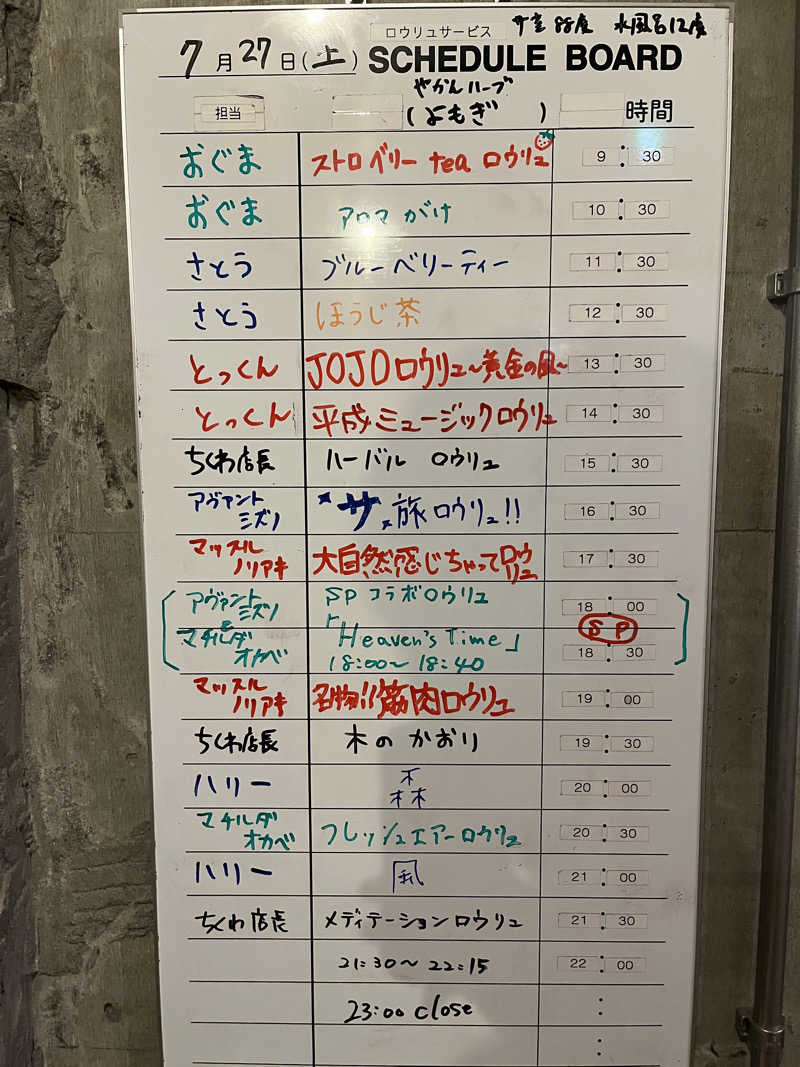 ロウリュサービス サ室 88度 水風呂12度
7月27日(土) SCHEDULE BOARD
やかんハーブ
担当 (よもぎ ) 時間
おぐま ストロベリー tea ロウリュ 9:30
おぐま アロマがけ 10:30
さとう ブルーベリーティー 11:30
さとう ほうじ茶 12:30
とっくん JOJOロウリュ~黄金の風~ 13:30
とっくん 平成ミュージックロウリュ 14:30
ちくわ店長 ハーバル ロウリュ 15:30
アヴァントミズノ "サ"旅ロウリュ!! 16:30
マッスルノリアキ 大自然感じちゃってロウリュ 17:30
アヴァントミズノ SPコラボロウリュ 18:00
& 「 SP
マチルダオカベ Heaven's Time」 18:30
18:00~18:40
マッスルノリアキ 名物!!筋肉ロウリュ 19:00
ちくわ店長 木のかおり 19:30
ハリー 森 20:00
マチルダオカベ フレッシュエアーロウリュ 20:30
ハリー 風 21:00
ちくわ店長 メディテーションロウリュ 21:30
21:30~22:15 22:00
23:00 close :
: